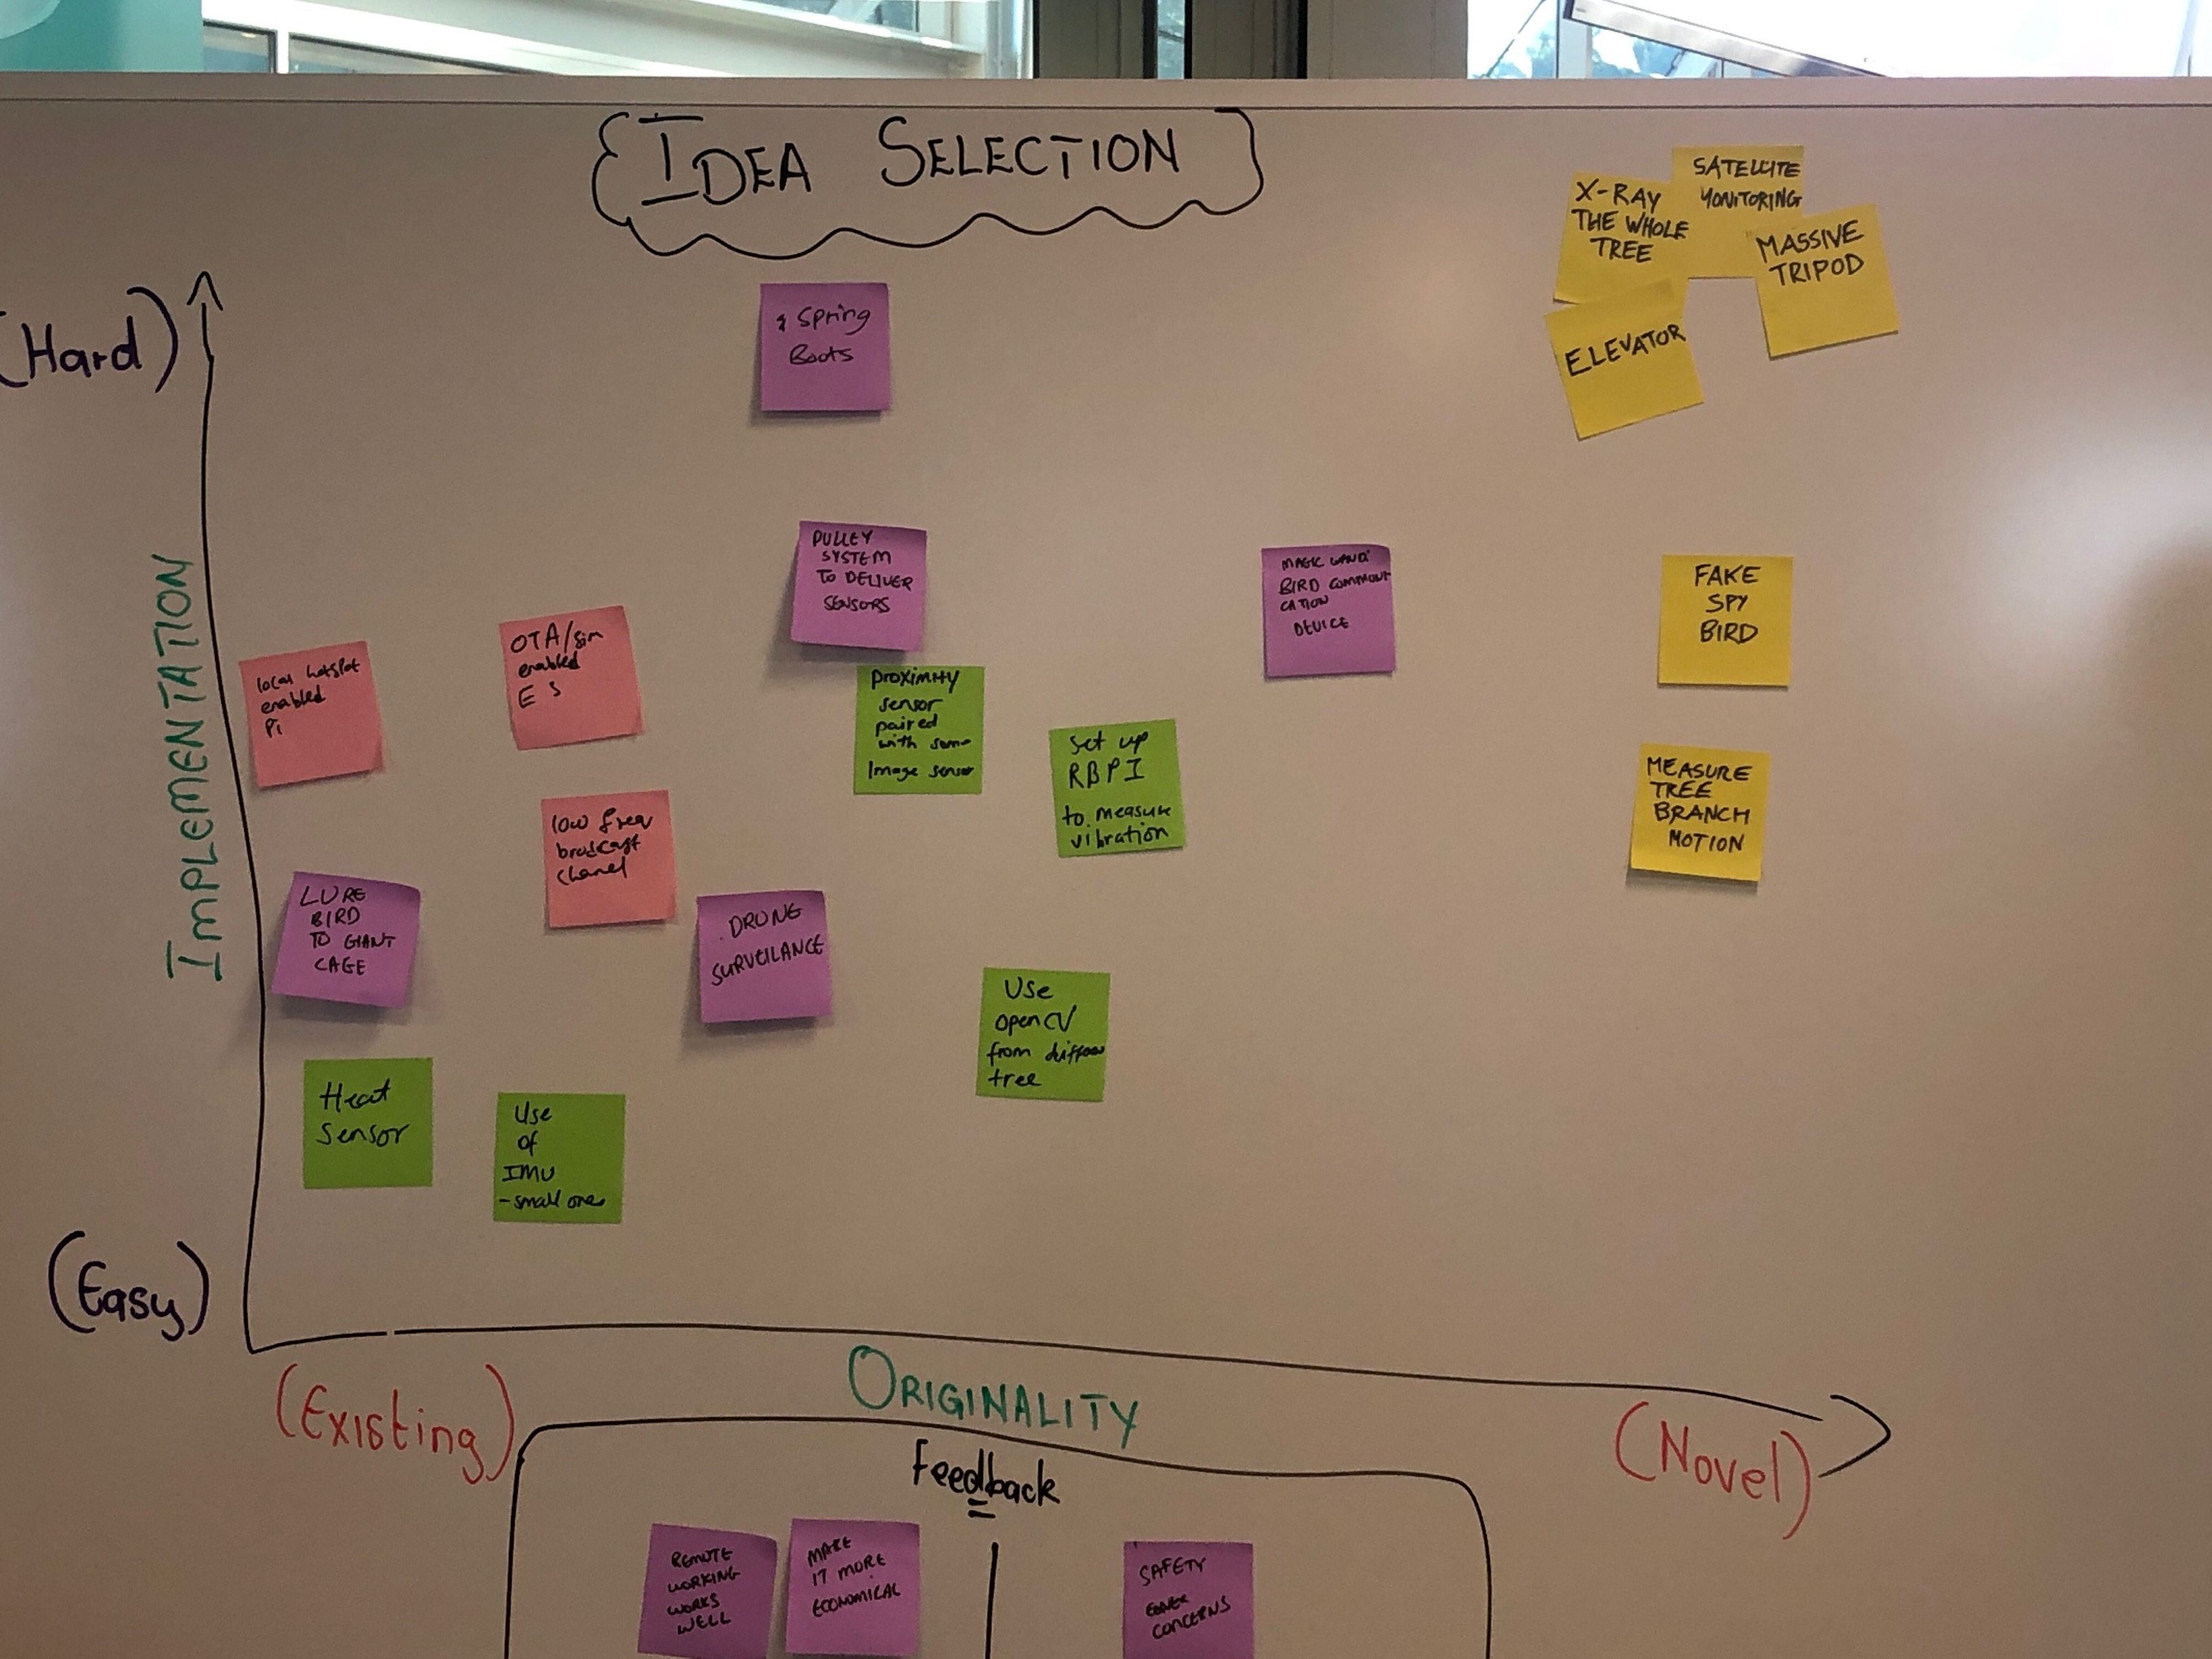 IDEA SELECTION
X-RAY
THE WHOLE
TREE
SATELLITE
MONITORING
MASSIVE
TRIPOD
ELEVATOR
(Hard)
Spring
Boots
IMPLEMENTATION
PULLEY
SYSTEM
TO DELIVER
SENSORS
MAGIC WAND
BIRD COMMUNI
CATION
DEVICE
FAKE
SPY
BIRD
local hotslot
enabled
Pi
OTA/sim
enabled
E S
Proximity
sensor
paired
with some
Image sensor
Set up
RBPI
to measure
vibration
MEASURE
TREE
BRANCH
MOTION
low freq
brodcast
chanel
LURE
BIRD
TO GIANT
CAGE
DRONE
SURVEILANCE
Use
openCV
from
tree
Heat
Sensor
Use
of
IMU
- small one
(Easy)
(Existing)
ORIGINALITY
(Novel)
Feedback
REMOTE
WORKING
WORKS
WELL
MAKE
IT MORE
ECONOMICAL
SAFETY
CONCERNS